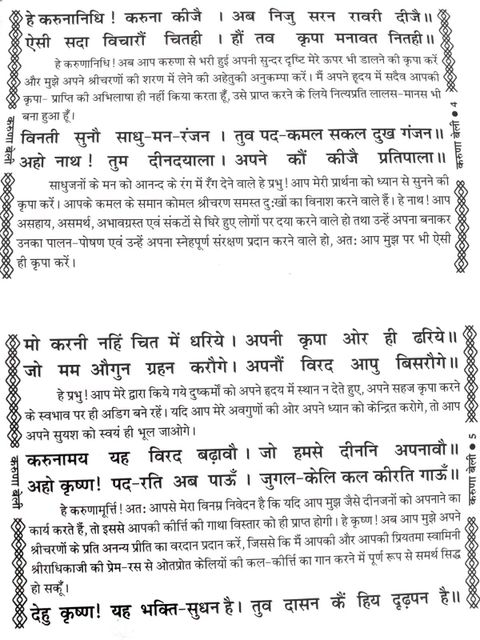 हे करुनानिधि! करुना कीजै । अब निजु सरन रावरी दीजै॥
ऐसी सदा विचारौं चितही । हौं तव कृपा मनावत नितही॥
हे करुणानिधि! अब आप करुणा से भरी हुई अपनी सुन्दर दृष्टि मेरे ऊपर भी डालने की कृपा करें
और मुझे अपने श्रीचरणों की शरण में लेने की अहेतुकी अनुकम्पा करें। मैं अपने हृदय में सदैव आपकी
कृपा- प्राप्ति की अभिलाषा ही नहीं किया करता हूँ, उसे प्राप्त करने के लिये नित्यप्रति लालस-मानस भी
बना हुआ हूँ।
विनती सुनौ साधु-मन-रंजन । तुव पद-कमल सकल दुख गंजन॥
अहो नाथ! तुम दीनदयाला। अपने कौं कीजै प्रतिपाला॥
साधुजनों के मन को आनन्द के रंग में रँग देने वाले हे प्रभु! आप मेरी प्रार्थना को ध्यान से सुनने की
कृपा करें। आपके कमल के समान कोमल श्रीचरण समस्त दु:खों का विनाश करने वाले हैं। हे नाथ! आप
असहाय, असमर्थ, अभावग्रस्त एवं संकटों से घिरे हुए लोगों पर दया करने वाले हो तथा उन्हें अपना बनाकर
उनका पालन-पोषण एवं उन्हें अपना स्नेहपूर्ण संरक्षण प्रदान करने वाले हो, अत: आप मुझ पर भी ऐसी
ही कृपा करें।
करुणा बेली
करुणा बेली ● 4
मो करनी नहिं चित में धरिये। अपनी कृपा ओर ही ढरिये॥
जो मम औगुन ग्रहन करौगे। अपनौं विरद आपु बिसरौगे॥
हे प्रभु! आप मेरे द्वारा किये गये दुष्कर्मों को अपने हृदय में स्थान न देते हुए, अपने सहज कृपा करने
के स्वभाव पर ही अडिग बने रहें। यदि आप मेरे अवगुणों की ओर अपने ध्यान को केन्द्रित करोगे, तो आप
अपने सुयश को स्वयं ही भूल जाओगे।
करुनामय यह विरद बढ़ावौ। जो हमसे दीननि अपनावौ॥
अहो कृष्ण! पद-रति अब पाऊँ । जुगल-केलि कल कीरति गाऊँ॥
हे करुणामूर्त्ति! अत: आपसे मेरा विनम्र निवेदन है कि यदि आप मुझ जैसे दीनजनों को अपनाने का
कार्य करते हैं, तो इससे आपकी कीर्त्ति की गाथा विस्तार को ही प्राप्त होगी। हे कृष्ण! अब आप मुझे अपने
श्रीचरणों के प्रति अनन्य प्रीति का वरदान प्रदान करें, जिससे कि मैं आपकी और आपकी प्रियतमा स्वामिनी
श्रीराधिकाजी की प्रेम-रस से ओतप्रोत केलियों की कल-कीर्त्ति का गान करने में पूर्ण रूप से समर्थ सिद्ध
हो सकूँ।
देहु कृष्ण! यह भक्ति-सुधन है। तुव दासन कैं हिय दृढ़पन है॥
करुणा बेली
करुणा बेली ● 5